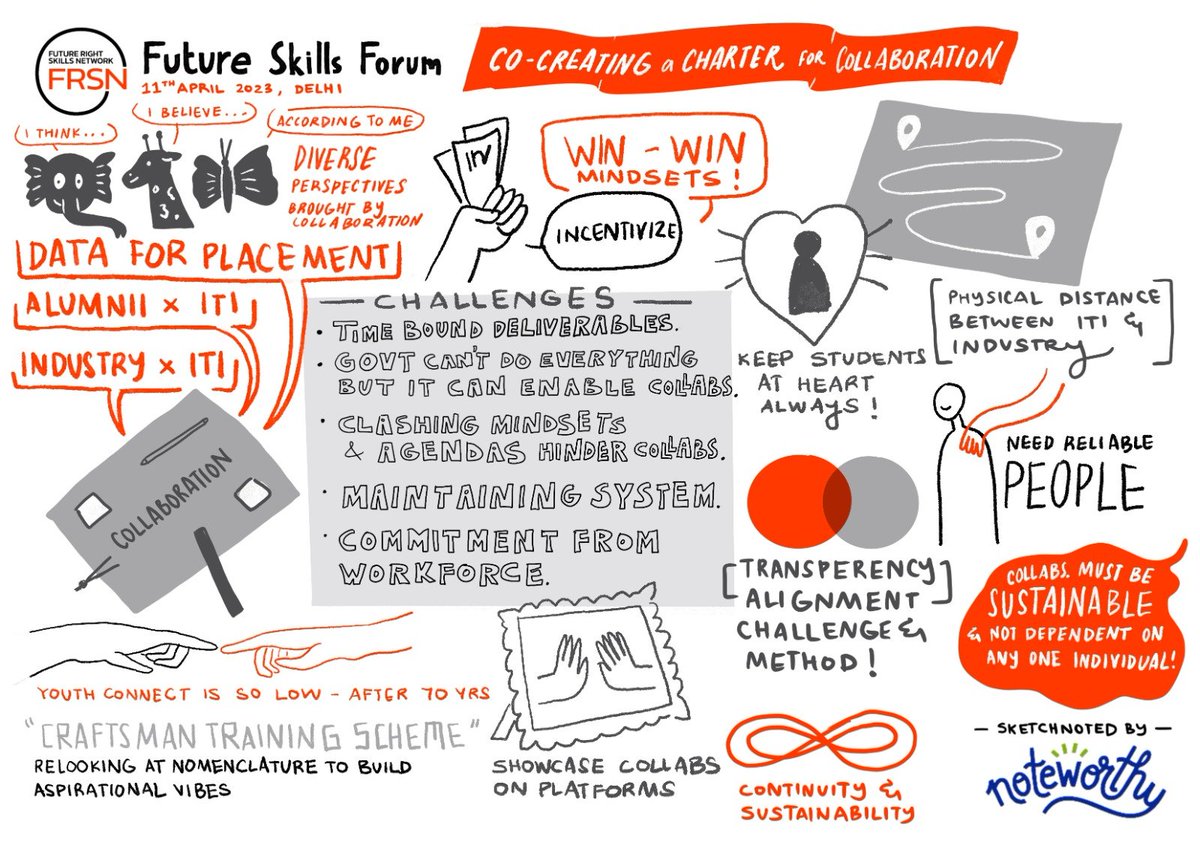 FUTURE RIGHT
SKILLS NETWORK
FRSN
Future Skills Forum
11TH APRIL 2023, DELHI
CO-CREATING a CHARTER FOR COLLABORATION
I THINK...
I BELIEVE...
ACCORDING TO ME
DIVERSE
PERSPECTIVES
BROUGHT BY
COLLABORATION
DATA FOR PLACEMENT
ALUMNII x ITI
INDUSTRY x ITI
COLLABORATION
WIN - WIN
MINDSETS!
INCENTIVIZE
CHALLENGES
• TIME BOUND DELIVERABLES.
• GOVT CAN'T DO EVERYTHING
BUT IT CAN ENABLE COLLABS.
• CLASHING MINDSETS
& AGENDAS HINDER COLLABS.
• MAINTAINING SYSTEM.
• COMMITMENT FROM
WORKFORCE.
KEEP STUDENTS
AT HEART
ALWAYS!
PHYSICAL DISTANCE
BETWEEN ITI &
INDUSTRY
NEED RELIABLE
PEOPLE
TRANSPERENCY
ALIGNMENT
CHALLENGE &
METHOD!
COLLABS. MUST BE
SUSTAINABLE
& NOT DEPENDENT ON
ANY ONE INDIVIDUAL!
YOUTH CONNECT IS SO LOW - AFTER 70 YRS
"CRAFTSMAN TRAINING SCHEME"
RELOOKING AT NOMENCLATURE TO BUILD
ASPIRATIONAL VIBES
SHOWCASE COLLABS
ON PLATFORMS
CONTINUITY &
SUSTAINABILITY
— SKETCHNOTED BY —
noteworthy